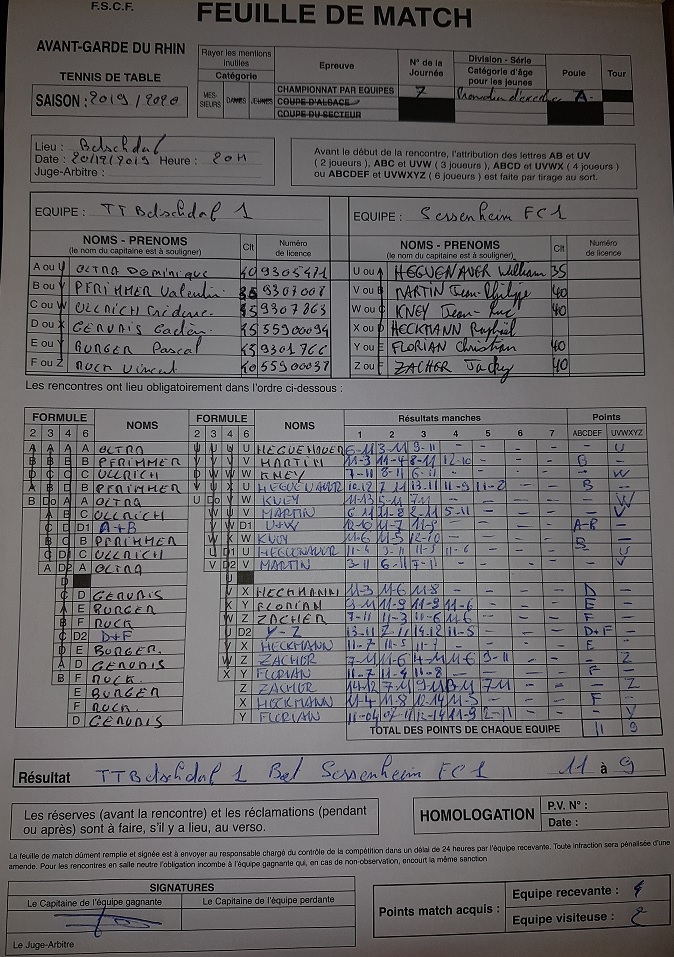 F.S.C.F.
FEUILLE DE MATCH
AVANT-GARDE DU RHIN
TENNIS DE TABLE
SAISON : 2019 / 2020
Rayer les mentions inutiles
Catégorie
MES-SIEURS DAMES JEUNES
Epreuve
CHAMPIONNAT PAR EQUIPES
COUPE D'ALSACE
COUPE DU SECTEUR
N° de la Journée
7
Division - Série
Catégorie d'âge pour les jeunes
Poule
A
Tour
Lieu : Betschdorf
Date : 20/12/2019 Heure : 20H
Juge-Arbitre :
Avant le début de la rencontre, l'attribution des lettres AB et UV
( 2 joueurs ), ABC et UVW ( 3 joueurs ), ABCD et UVWX ( 4 joueurs )
ou ABCDEF et UVWXYZ ( 6 joueurs ) est faite par tirage au sort.
EQUIPE : TTBetschdorf 1
EQUIPE : Sessenheim FC1
NOMS - PRENOMS
(le nom du capitaine est à souligner)
Clt
Numéro de licence
NOMS - PRENOMS
(le nom du capitaine est à souligner)
Clt
Numéro de licence
A ou U OLTRA Dominique
B ou V PFRIMMER Valentin
C ou W ULLRICH
D ou X GERVAIS
E ou Y BURGER Pascal
F ou Z RUCK Vincent
U ou A HEGUENAUER William 35
V ou B MARTIN Jean-Philippe 40
W ou C KNEY Jean-Luc 40
X ou D HECKMANN Raphaël
Y ou E FLORIAN Christian 40
Z ou F ZACHER Jacky 40
Les rencontres ont lieu obligatoirement dans l'ordre ci-dessous :
FORMULE NOMS FORMULE NOMS Résultats manches Points
2 3 4 6 2 3 4 6 1 2 3 4 5 6 7 ABCDEF UVWXYZ
OLTRA HEGUENAUER 6-11 3-11 9-11 - - - - - U
PFRIMMER MARTIN 11-3 11-4 8-11 12-10 - - - B -
ULLRICH KNEY 7-11 8-11 6-11 - - - - - W
PFRIMMER HEGUENAUER 10-12 7-11 13-11 11-9 11-2 - - B -
OLTRA KNEY 11-13 5-11 7-11 - - - - - W
ULLRICH MARTIN 5-11 - - - - V
A+B U+W 12-10 11-7 11-9 - - - - A-B -
PFRIMMER KNEY 11-6 11-5 12-10 - - - - B -
ULLRICH HEGUENAUER 11-4 3-11 11-6 - - - - U
OLTRA MARTIN 3-11 6-11 7-11 - - - - - V
GERVAIS HECKMANN 11-3 11-6 11-8 - - - - D -
BURGER FLORIAN 9-11 11-9 11-9 11-6 - - - E -
RUCK ZACHER 7-11 11-3 11-6 11-6 - - - F -
D+F Y-Z 13-11 7-11 14-12 11-5 - - - D+F -
BURGER HECKMANN 11-7 11-5 11-7 - - - - E -
GERVAIS ZACHER 7-11 11-6 4-11 11-6 9-11 - - - Z
RUCK FLORIAN 11-7 11-9 11-8 - - - - F -
BURGER ZACHER 14-12 7-11 9-11 7-11 - - - Z
RUCK HECKMANN 11-4 11-8 12-14 11-5 - - - F -
GERVAIS FLORIAN 11-04 07-11 12-14 11-9 2-11 - - - Y
TOTAL DES POINTS DE CHAQUE EQUIPE 11 9
Résultat TTBetschdorf 1 Bat Sessenheim FC1 11 à 9
Les réserves (avant la rencontre) et les réclamations (pendant
ou après) sont à faire, s'il y a lieu, au verso.
HOMOLOGATION
P.V. N° :
Date :
La feuille de match dûment remplie et signée est à envoyer au responsable chargé du contrôle de la compétition dans un délai de 24 heures par l'équipe recevante. Toute infraction sera pénalisée d'une
amende. Pour les rencontres en salle neutre l'obligation incombe à l'équipe gagnante qui, en cas de non-observation, encourt la même sanction
SIGNATURES
Le Capitaine de l'équipe gagnante
Le Capitaine de l'équipe perdante
Le Juge-Arbitre
Points match acquis :
Equipe recevante : 4
Equipe visiteuse : 2